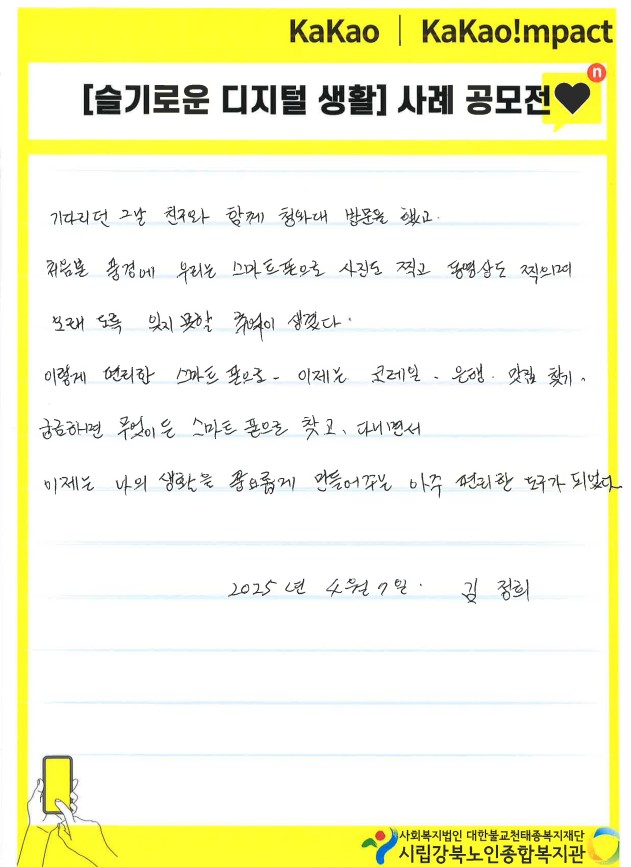 KaKao | KaKao!mpact
n
[슬기로운 디지털 생활] 사례 공모전
기다리던 그날 친구와 함께 청와대 방문을 했고.
풍경에 우리는 스마트폰으로 사진도 찍고 동영상도 찍으며
오래 도록 잊지 못할 추억이 생겼다.
이렇게 편리한 스마트폰으로 - 이제는 코레일 - 은행. 맛집 찾기.
궁금하면 무엇이든 스마트폰으로 찾고, 다니면서
이제는 나의 생활을 풍요롭게 만들어주는 아주 편리한 도구가 되었다.
2025년 4월 7일. 김 정희
사회복지법인 대한불교천태종복지재단
시립강북노인종합복지관